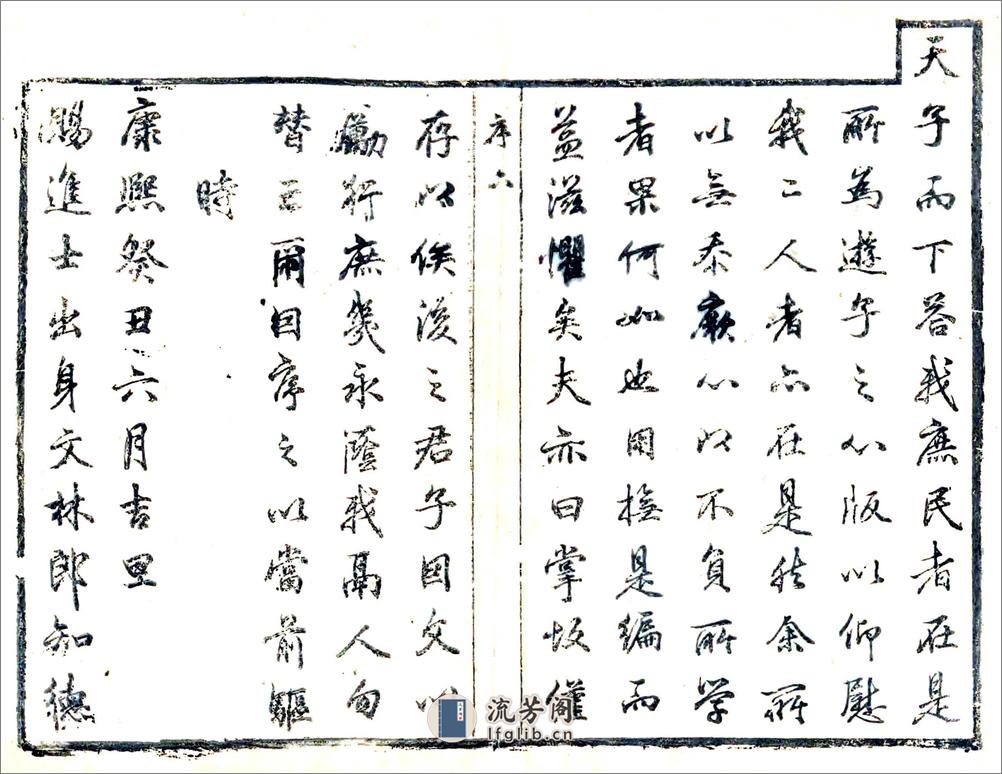 天子而下答我庶民者在是
所為遊子之心版以仰慰
我二人者亦在是然余所
以無忝厥心以不負所學
者果何如也用撫是編而
益滋懼矣夫亦曰掌故僅
序六
存以俟後之君子因文以
勵行庶幾永蔭我鬲人勿
替云爾因序之以當前驅
時
康熙癸丑六月吉旦
賜進士出身文林郎知德
流芳阁
lfglib.cn